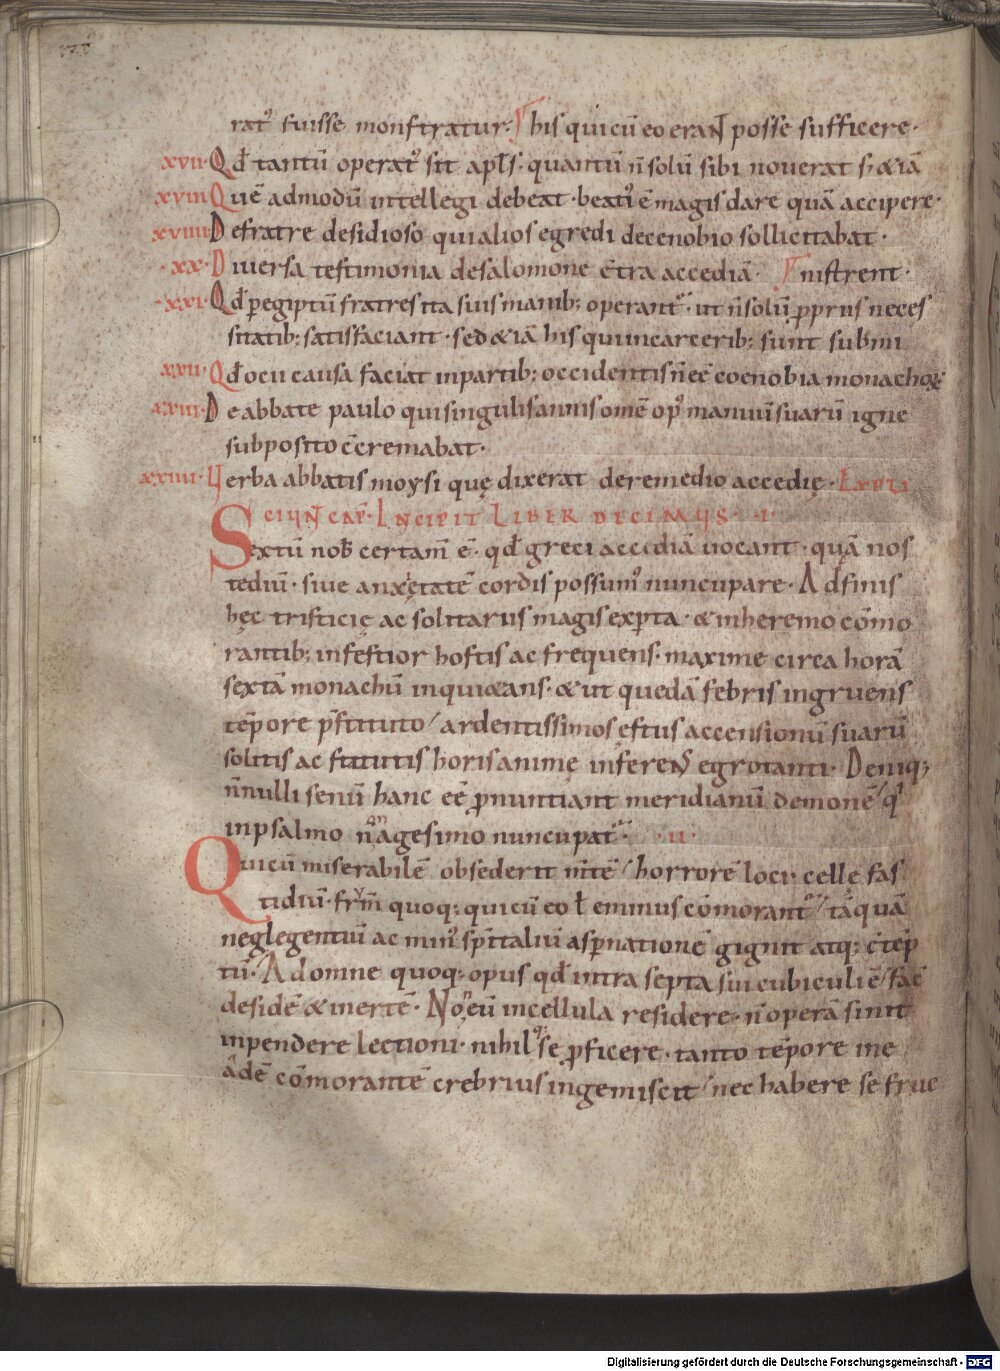 rat᾽ fuisse monstratur· his qui cū eo erant posse sufficere·
xvii· Qđ tantū operat᾽ sit apłs· quantū n̄ solū sibi noverat s; &iā
xviii Quē admodū intellegi debeat· beati᾽ ē magis dare quā accipere·
xviiii De fratre desidioso qui alios egredi de cenobio sollicitabat·
·xx· Diversa testimonia de salomone c̄tra accediā· nistrent·
·xxi· Qđ p egiptū fratres ita suis manib; operant᾽ ut n̄ solū ꝓpriis neces
sitatib; satisfaciant· sed &iā his qui in carcerib; sunt submi
xxii· Qđ ocii causa faciat in partib; occidentis n̄ eē coenobia monachoꝝ
xxiii· De abbate paulo qui singulis annis omē op᾽ manuū suarū igne
subposito c̄cremabat·
xxiiii· Verba abbatis moysi quę dixerat de remedio accedię· Expli
ciunt cap̄· Incipit liber decimus· ·i·
Sextū nob̄ certam̄ ē· qđ greci accidiā vocant· quā nos
tediū· sive anxietatē cordis possum᾽ nuncupare· Adfinis
hęc tristicię ac solitariis magis exp̄ta· & in heremo cōmo
rantib; infestior hostis ac frequens· maxime circa horā
sextā monachū inqui&ans· & ut quedā febris ingruens
tēpore p̄stituto/ ardentissimos estus accensionū suarū
solitis ac statutis horis animę inferens egrotanti· Deniq;
n̄nulli senū hanc eē ꝓnuntiant meridianū demonē/ q᾽
in psalmo n̄agesimo nuncupat᾽· ·ii·
Qui cū miserabilē obsederit m̄tē/ horrorē loci· celle fas
tidiū· fr̄m quoq; qui cū eo ł eminus cōmorant᾽/ tāquā
neglegentiū ac min᾽ sp̄italiū asp̄nationē gignit atq; c̄tēp
tū· Ad omne quoq; opus qđ intra septa sui cubiculi ē/ fac̄
desidē & inertē· Nō eū in cellula residere· n̄ operā sinit
inpendere lectioni· nihilq; se ꝓficere· tanto tēpore in e
adē cōmorantē crebrius ingemiscit/ nec habere se fruc
Digitalisierung gefördert durch die Deutsche Forschungsgemeinschaft - DFG